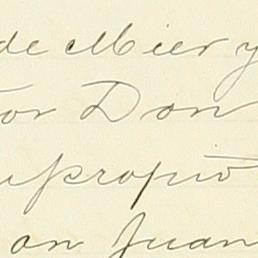 de Mier y
or Don
expropió
on Juan